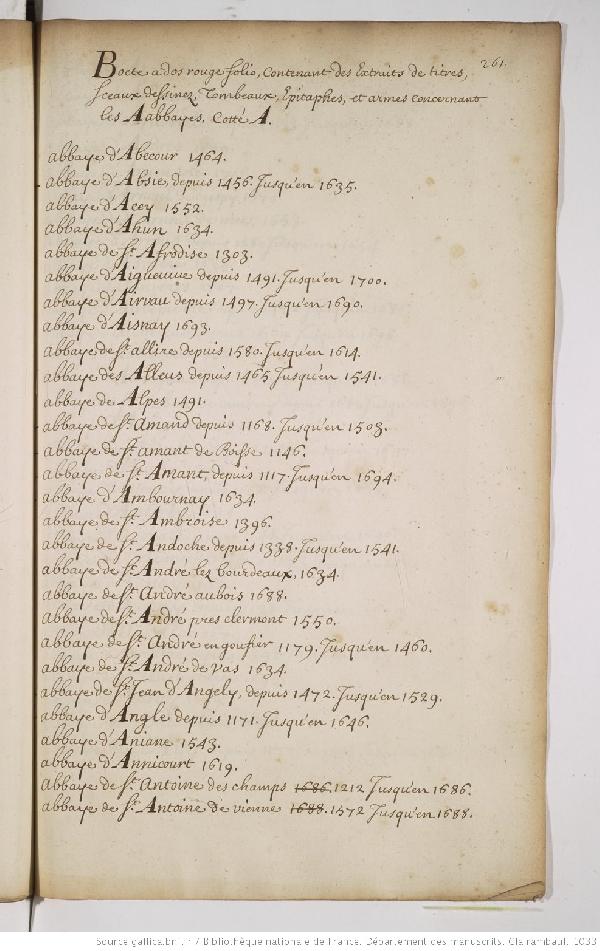 261.
Boete a dos rouge folio, Contenant des Extraits de titres,
sceaux dessinez, Tombeaux, Epitaphes, et armes concernant
les Aabbayes. Cotté A.
abbaye d'Abecour 1464.
abbaye d'Absie, depuis 1456. Jusqu'en 1635.
abbaye d'Acey 1552.
abbaye d'Ahun 1634.
abbaye de St. Afrodise 1303.
abbaye d'Aiguevive depuis 1491. Jusqu'en 1700.
abbaye d'Airvau depuis 1497. Jusqu'en 1690.
abbaye d'Aisnay 1693.
abbaye de St. allire depuis 1580. Jusqu'en 1614.
abbaye des Alleus depuis 1465 Jusqu'en 1541.
abbaye de Alpes 1491.
abbaye de St. Amand depuis 1168. Jusqu'en 1503.
abbaye de St. amant de Boisse 1146.
abbaye de St. Amant, depuis 1117. Jusqu'en 1694.
abbaye d'Ambournay 1634.
abbaye de St. Ambroise 1396.
abbaye de St. Andoche depuis 1338. Jusqu'en 1541.
abbaye de St. André lez bourdeaux, 1634.
abbaye de St. André aubois 1688.
abbaye de St. André pres clermont 1550.
abbaye de St. André en goufier 1179. Jusqu'en 1460.
abbaye de St. André de vas 1634.
abbaye de St. Jean d'Angely, depuis 1472. Jusqu'en 1529.
abbaye d'Angle depuis 1171. Jusqu'en 1646.
abbaye d'Aniane 1543.
abbaye d'Annicourt 1619.
abbaye de St. Antoine des champs 1686. 1212 Jusqu'en 1686.
abbaye de St. Antoine de vienne 1688. 1572 Jusqu'en 1688.
Source gallica.bnf.fr / Bibliothèque nationale de France. Département des manuscrits. Clairambault 1033